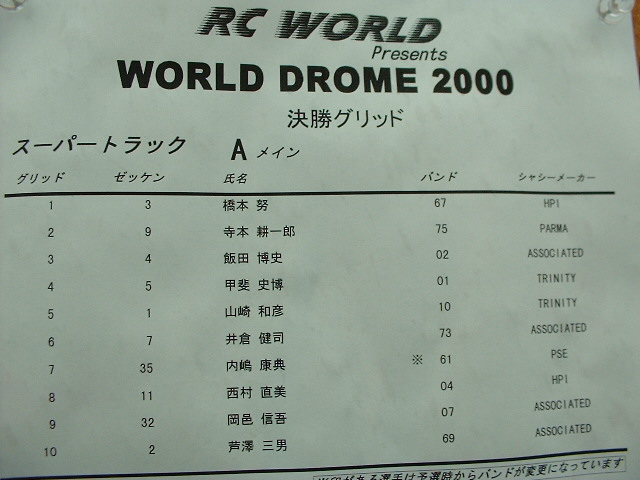 RC WORLD
Presents
WORLD DROME 2000
決勝グリッド
スーパートラック A メイン
グリッド ゼッケン 氏名 バンド シャシーメーカー
1 3 橋本 努 67 HPI
2 9 寺本 耕一郎 75 PARMA
3 4 飯田 博史 02 ASSOCIATED
4 5 甲斐 史博 01 TRINITY
5 1 山崎 和彦 10 TRINITY
6 7 井倉 健司 73 ASSOCIATED
7 35 内嶋 康典 ※ 61 PSE
8 11 西村 直美 04 HPI
9 32 岡邑 信吾 07 ASSOCIATED
10 2 芦澤 三男 69 ASSOCIATED
※印がある選手は予選時からバンドが変更になっています